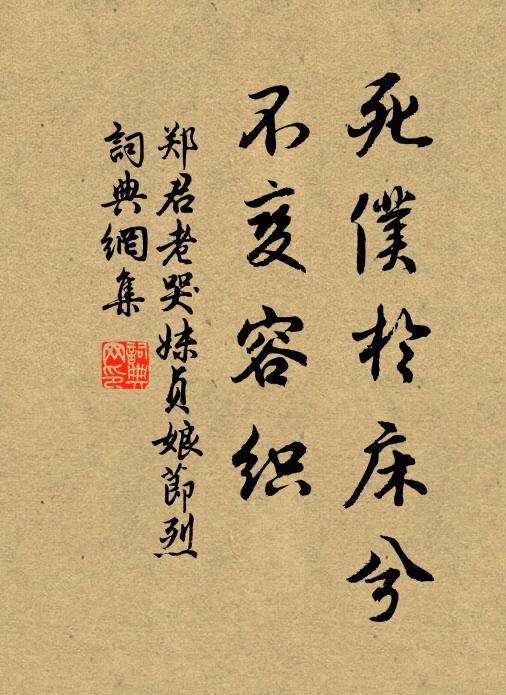 死僕於床兮
不变容织
郑君老哭妹贞娘節烈
詞典網集
詞典网印